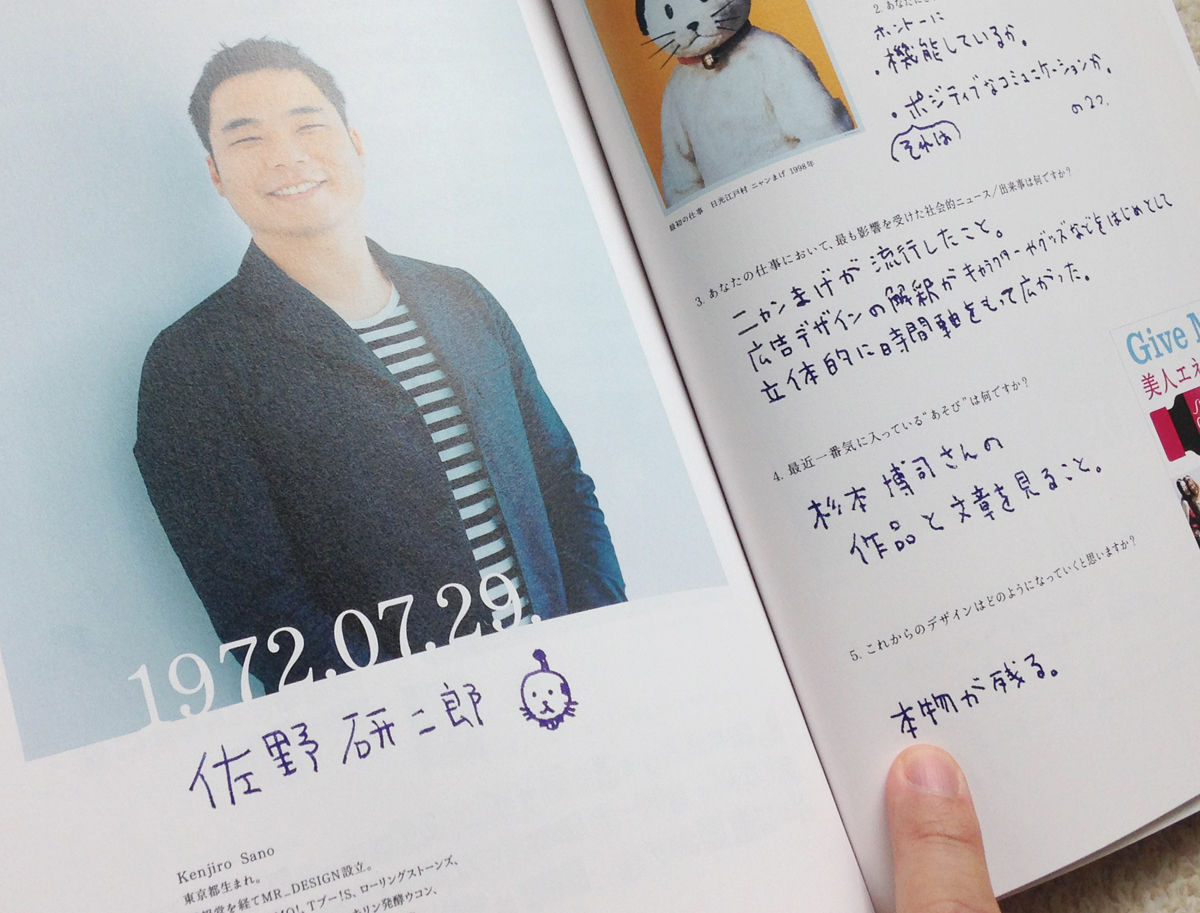 1972.07.29.
佐野 研二郎
Kenjiro Sano
東京都生まれ。
を経てMR_DESIGN設立。
Tブー!S、ローリングストーンズ、
発酵ウコン、
2. あなたに
ホントーに
・機能しているか。
・ポジティブなコミュニケーションか。
(それは)
の2つ。
最初の仕事 日光江戸村 ニャンまげ 1998年
3. あなたの仕事において、最も影響を受けた社会的ニュース/出来事は何ですか?
ニャンまげが 流行したこと。
広告デザインの解釈がキャラクターやグッズなどをはじめとして
立体的に時間軸をもって広がった。
Give
美人エネ
4. 最近一番気に入っている“あそび”は何ですか?
杉本 博司さんの
作品と文章を見ること。
5. これからのデザインはどのようになっていくと思いますか?
本物が残る。